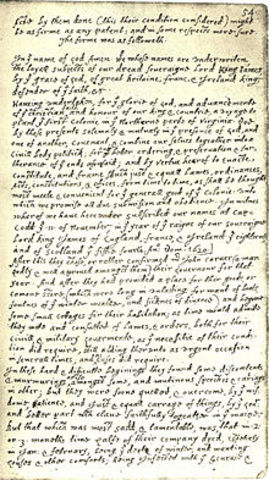 54
fide by them done (this their condition considered) might
be as firme as any patent; and in some respects more sure.
The forme was as followeth.
In ye name of god Amen. We whose names are underwriten,
the loyall subjects of our dread soveraigne Lord King James
by ye grace of god, of great britaine, franc, & Ireland king,
defender of ye faith, &c
Haveing undertaken, for ye glorie of god, and advancemente
of ye christian and honour of our king & countrie, a voyage to
plant ye first colonie in ye Northerne parts of Virginia. doe
by these presents solemnly & mutualy in ye presence of god, and
one of another, covenant, & combine our selves togeather into a
civill body politick; for our better ordering, & preservation & fur-
therance of ye ends aforesaid; and by vertue hearof to enacte,
constitute, and frame such just & equall lawes, ordinances,
acts, constitutions, & offices, from time to time, as shall be thought
most meete & convenient for ye generall good of ye colonie: unto
which we promise all due submission and obedience. In witnes
wherof we have hereunder subscribed our names at cap-
Codd ye .11. of November, in ye year of ye raigne of our soveraigne
Lord king James of England, france, & Ireland ye eighteenth
and of Scotland ye fiftie fourth. Ano Dom. 1620.
After this they chose, or rather confirmed mr John carver (a man
godly & well approved amongst them) their Governour for that
year. And after they had provided a place for their goods, or
comone store, (which were long in unlading, for want of boats,
foulnes of ye winter weather, and sicknes of diverce) and begune
some small cottages for their habitation; as time would admitte
they mette and consulted of lawes, & orders, both for their
civill & military Governmente, as ye necessitie of their condi-
tion did require, still adding therunto as urgent occasion
in severall times, and as cases did require.
In these hard & difficulte beginings they found some discontents
& murmurings amongst some, and mutinous speeches & cariags
in other; but they were soone quelled, & overcome, by ye wis-
dome, patience, and just & equall carrage of things, by ye govr
and better part wch clave faithfully togeather in ye maine.
but that which was most sadd, & lamentable, was, that in 2.
or 3. moneths time halfe of their company dyed, espetialy
in Jan: & february, being ye depth of winter, and wanting
houses & other comforts; being infected with ye scurvie &